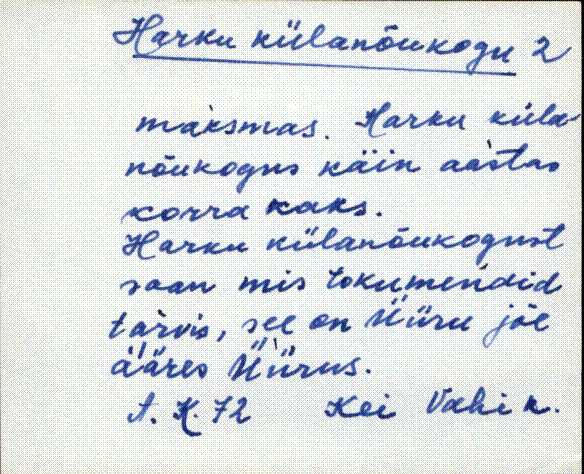 Harku külanõukogu 2
maksmas. Harku küla-
nõukogus käin aastas
korra kaks.
Harku külanõukogust
saan mis tokumendid
tarvis, see on Üüru jõe
ääres Üürus.
A. K. 72 Kei Vahi k.